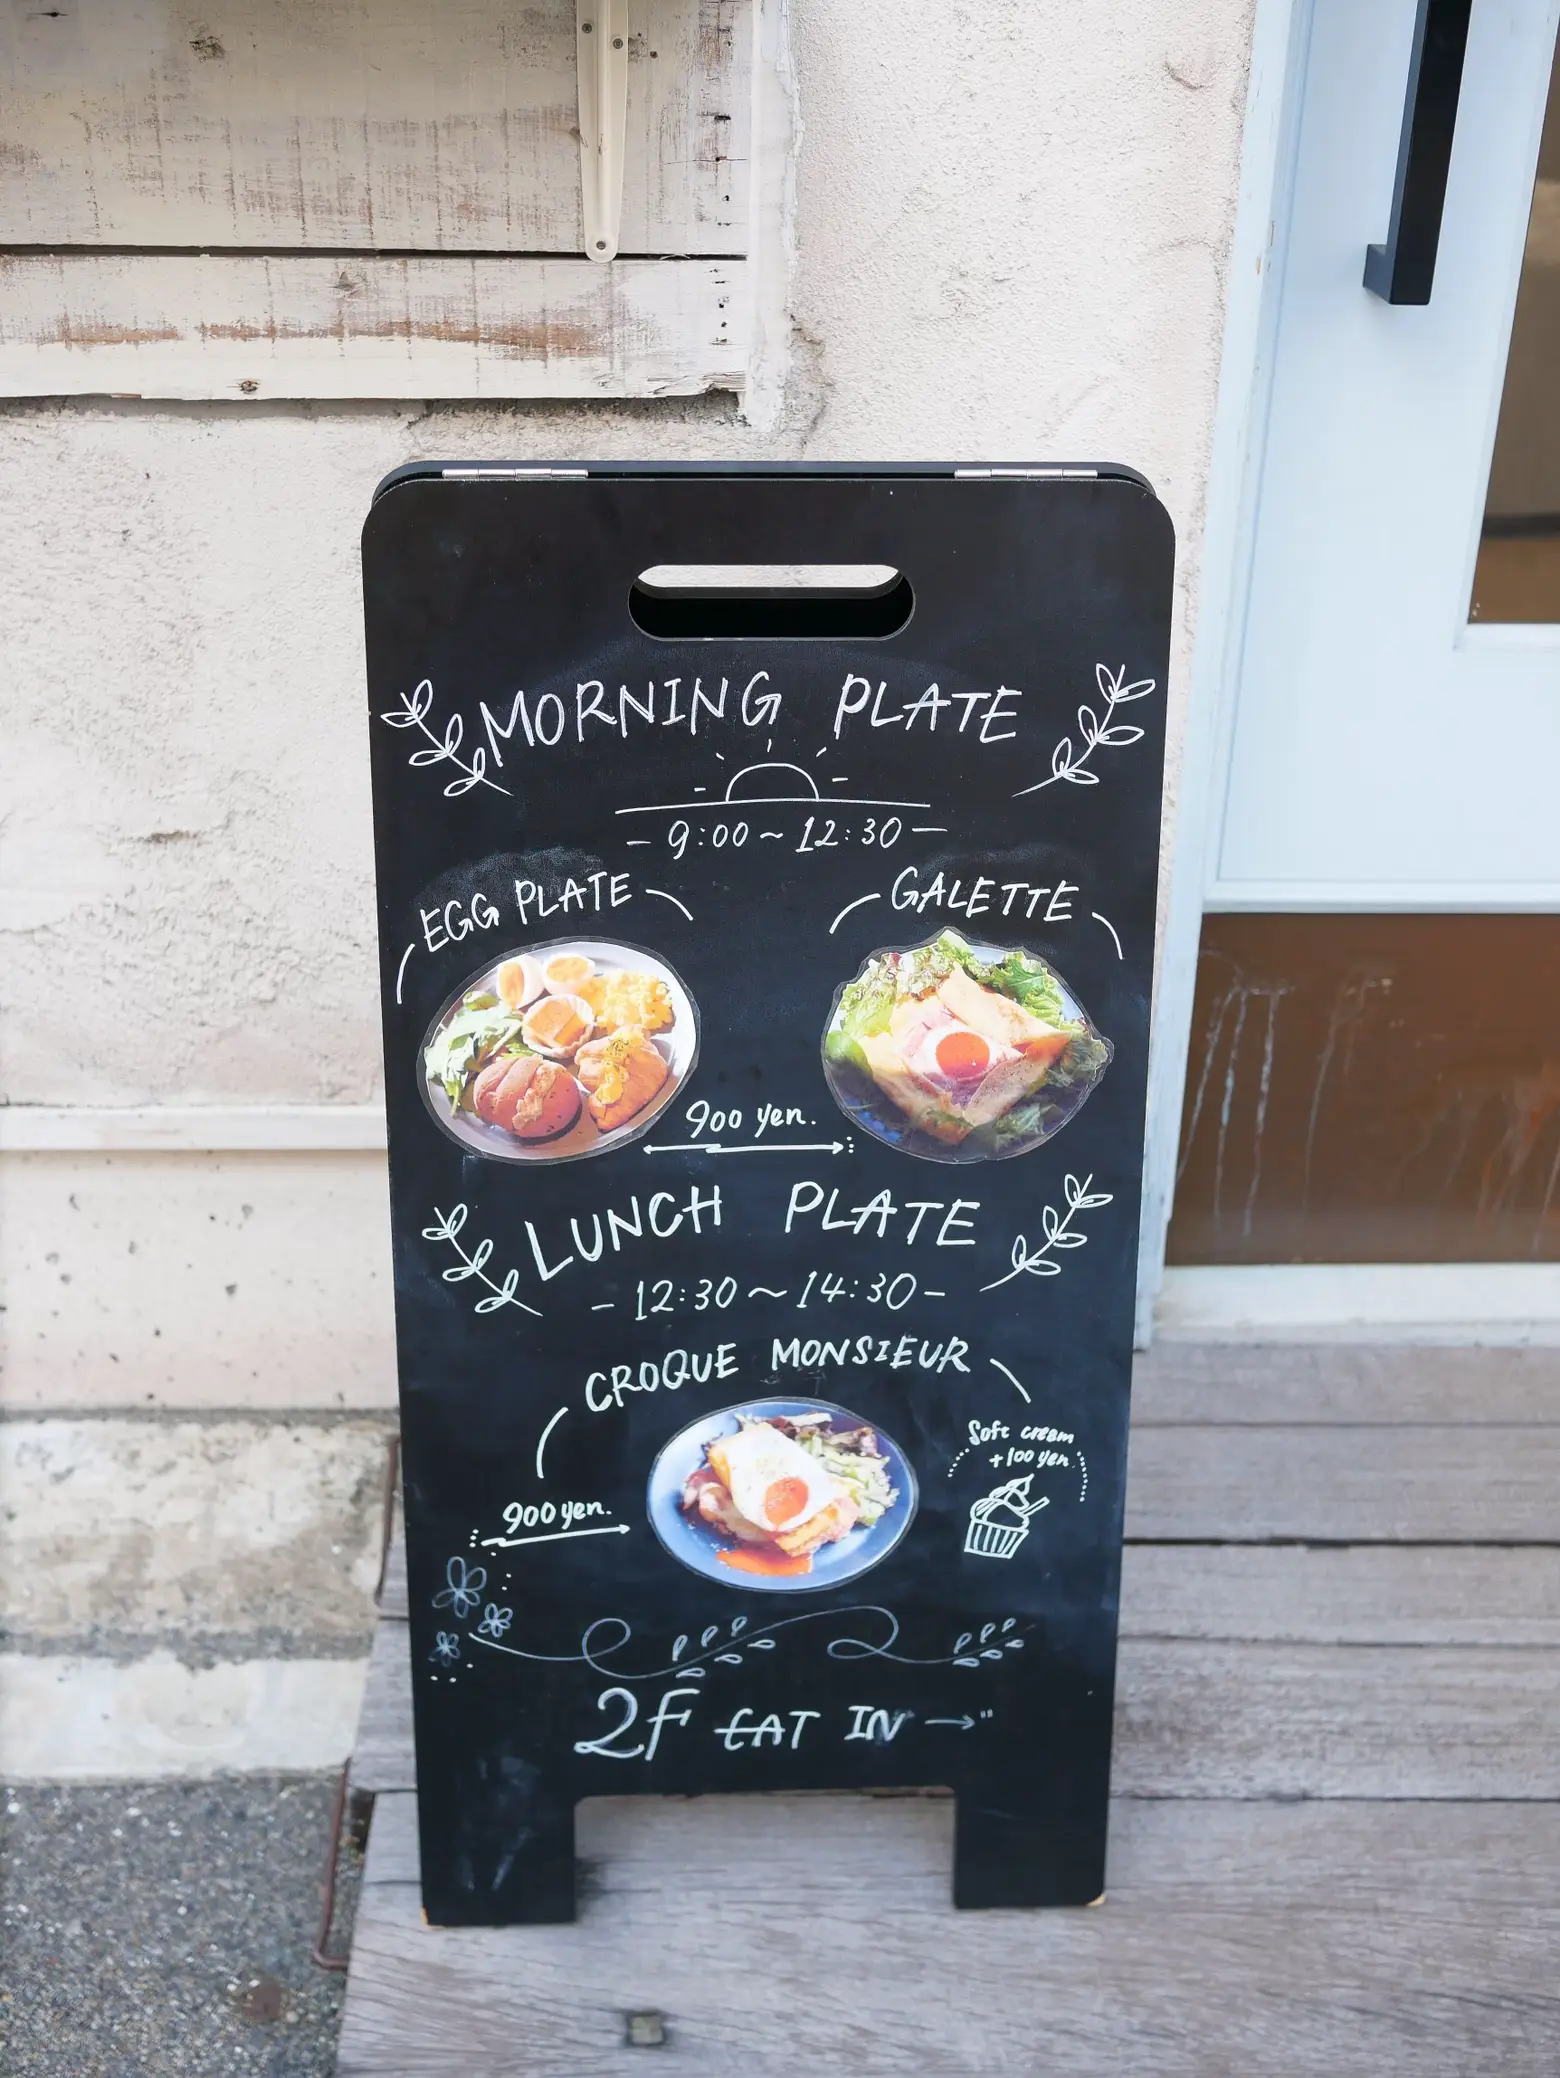 MORNING PLATE
- 9:00 ~ 12:30 -
EGG PLATE
GALETTE
900 yen.
LUNCH PLATE
- 12:30 ~ 14:30 -
CROQUE MONSIEUR
Soft cream
+100 yen
900 yen.
2F EAT IN →